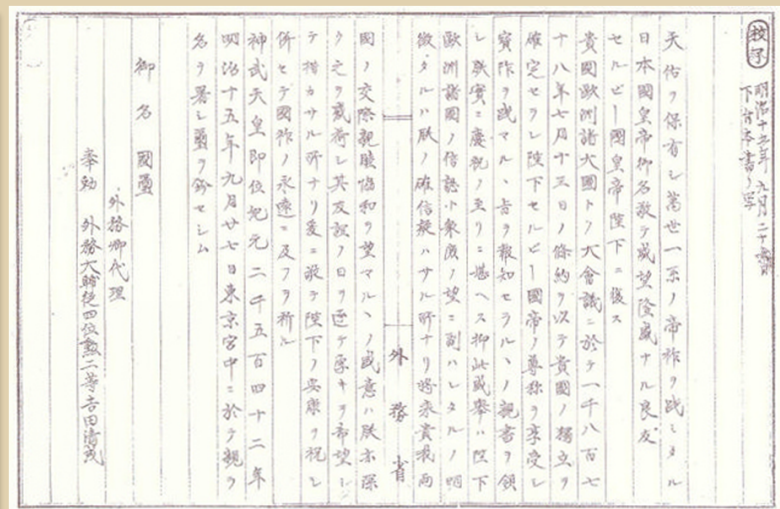 校了
明治十五年九月二十
下ケ本書ノ写
天佑ヲ保有シ萬世一系ノ帝祚ヲ践ミタル
日本國皇帝御名敬テ威望隆盛ナル良友
セルビー國皇帝陛下ニ復ス
貴國歐洲諸大國トノ大會議ニ於テ一千八百七
十八年七月十三日ノ條約ヲ以テ貴國ノ獨立ヲ
確定セラレ陛下セルビー國帝ノ尊称ヲ享受シ
寳祚ヲ践マルヽ旨ヲ報知セラルヽノ親書ヲ領
シ朕實ニ慶祝ノ至リニ堪ヘス抑此盛擧ハ陛下
歐洲諸國ノ信認ト衆庶ノ望ニ副ハレタルノ明
徴タルハ朕ノ確信疑ハサル所ナリ将来貴我両
外務省
國ノ交際親睦協和ヲ望マルヽノ盛意ハ朕亦深
ク之ヲ感荷シ其友誼ノ日ヲ逐テ厚キヲ希望シ
テ措カサル所ナリ爰ニ敬テ陛下ノ安康ヲ祝シ
併セテ國祚ノ永遠ニ及フヲ祈ル
神武天皇即位紀元二千五百四十二年
明治十五年九月廿七日東京宮中ニ於テ親ラ
名ヲ署シ璽ヲ鈐セシム
御名國璽
外務卿代理
奉勅 外務大輔従四位勲二等吉田清成